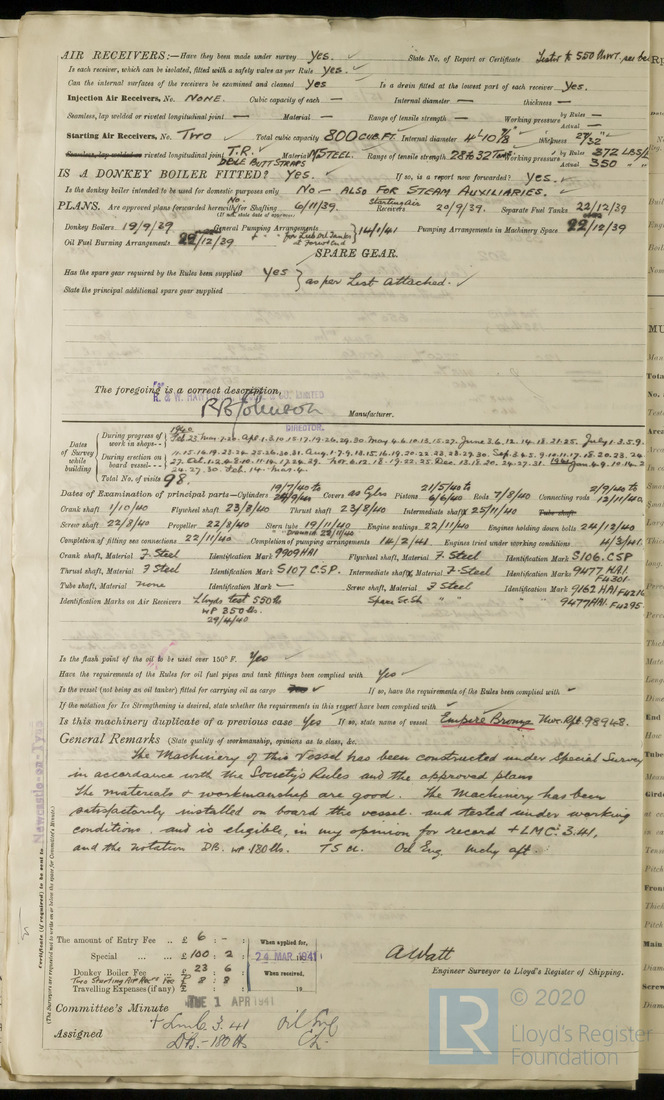 AIR RECEIVERS:—Have they been made under survey Yes. ✓ State No. of Report or Certificate
Is each receiver, which can be isolated, fitted with a safety valve as per Rule Yes. ✓
Can the internal surfaces of the receivers be examined and cleaned Yes ✓ Is a drain fitted at the lowest part of each receiver Yes.
Injection Air Receivers, No. NONE. Cubic capacity of each — Internal diameter — thickness —
Seamless, lap welded or riveted longitudinal joint — Material — Range of tensile strength — Working pressure by Rules — Actual —
Starting Air Receivers, No. TWO ✓ Total cubic capacity 800 CUB.FT Internal diameter 4'10 7/8" thickness 27/32"
Seamless, lap welded or riveted longitudinal joint T.R. DBLE BUTT STRAPS Material M STEEL. Range of tensile strength 28 to 32 Tons Working pressure by Rules 372 LBS/ Actual 350 " "
IS A DONKEY BOILER FITTED? YES. ✓ If so, is a report now forwarded? YES. ✓
Is the donkey boiler intended to be used for domestic purposes only No — ALSO FOR STEAM AUXILIARIES. ✓
PLANS. Are approved plans forwarded herewith for Shafting No. 6/11/39. Starting Air Receivers 20/9/39. Separate Fuel Tanks 22/12/39
(If not, state date of approval)
Donkey Boilers 19/9/39 General Pumping Arrangements 14/1/41 Pumping Arrangements in Machinery Space 22/12/39
" " for Lub Oil Tanks at Forward End
Oil Fuel Burning Arrangements 22/12/39
SPARE GEAR.
Has the spare gear required by the Rules been supplied Yes } as per List attached. ✓
State the principal additional spare gear supplied
The foregoing is a correct description,
DIRECTOR.
Manufacturer.
Dates of Survey while building
During progress of work in shops--
During erection on board vessel---
Total No. of visits 98.
Dates of Examination of principal parts—Cylinders 19/7/40 to Covers as Cyls Pistons 21/5/40 to 6/6/40 Rods 7/8/40 Connecting rods 2/9/40 to 12/11/40
Crank shaft 1/10/40 Flywheel shaft 23/8/40 Thrust shaft 23/8/40 Intermediate shafts 25/11/40 Tube shaft
Screw shaft 22/8/40 Propeller 22/8/40 Stern tube 19/11/40 Engine seatings 22/11/40 Engines holding down bolts 24/12/40
Completion of fitting sea connections 22/11/40 Completion of pumping arrangements 14/2/41 Engines tried under working conditions 4/3/41
Crank shaft, Material F Steel Identification Mark 9909HAI Flywheel shaft, Material F Steel Identification Mark S106.CSP
Thrust shaft, Material F Steel Identification Mark S107 C.S.P. Intermediate shafts, Material F Steel Identification Marks 9477 HAI. F4301
Tube shaft, Material none Identification Mark ✓ Screw shaft, Material F Steel Identification Mark 9162 HAI F4216
Identification Marks on Air Receivers Lloyds test 550 lbs Spare Sc Sh " " " " 9477HAI. F4295
WP 350 lbs.
29/4/40
Is the flash point of the oil to be used over 150° F. Yes ✓
Have the requirements of the Rules for oil fuel pipes and tank fittings been complied with Yes ✓
Is the vessel (not being an oil tanker) fitted for carrying oil as cargo ✓ If so, have the requirements of the Rules been complied with ✓
If the notation for Ice Strengthening is desired, state whether the requirements in this respect have been complied with ✓
Is this machinery duplicate of a previous case Yes If so, state name of vessel Empire Bronze Nwc. Rpt. 98948.
General Remarks (State quality of workmanship, opinions as to class, &c.
The Machinery of this Vessel has been constructed under Special Survey
in accordance with the Society's Rules and the approved plans
The materials & workmanship are good. The Machinery has been
satisfactorily installed on board the vessel. and tested under working
conditions. and is eligible, in my opinion for record + LMC. 3.41,
and the notation DB. WP 180 lbs. TS CL. Oil Eng. Mchy aft.
Certificate (if required) to be sent to Newcastle-on-Tyne
(The Surveyors are requested not to write on or below the space for Committee's Minute.)
The amount of Entry Fee .. £ 6 : - : When applied for,
Special ... ... £ 100 : 2 : 24 MAR 1941
Donkey Boiler Fee ... £ 23 : 6 When received,
Two Starting Air Recrs Fee £ 8 : 8
Travelling Expenses (if any) £ : : 19
A Watt
Engineer Surveyor to Lloyd's Register of Shipping.
Committee's Minute TUE 1 APR 1941
Assigned + Lmc 3.41 Oil Eng
DB.-180 lbs CL.
LR
© 2020
Lloyd's Register
Foundation